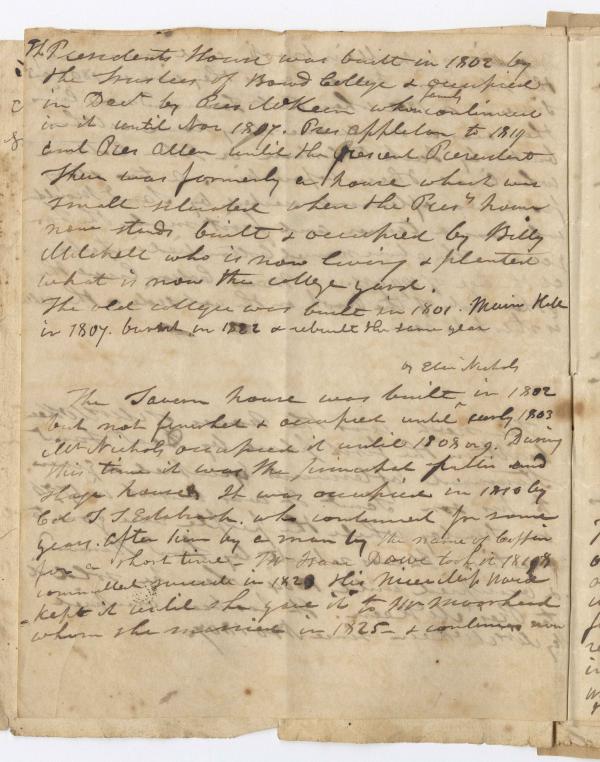 The Presidents House was built in 1802 by
the Trustees of Bowd College & occupied
in Dec. by Pres McKeen whose family continued
in it until Nov 1807. Pres Appleton to 1819
and Pres Allen until the present President
There was formerly a house which was
small situated where the Pres.ts house
now stands built & occupied by Billy
Mitchell who is now living & planted
what is now the college yard.
The old college was built in 1801. Main Hall
in 1807. burnt in 1822 & rebuilt the same year
by Eben Nichols
The Tavern house was built in 1802
but not finished & occupied until early 1803
Mr Nichols occupied it until 1808 or 9. During
this time it was the principal public and
stage house. It was occupied in 1810 by
Col. T. S. Estabrook. who continued for some
years. after him by a man by the name of Coffin
for a short time - Mr Isaac Dow took it 1818
committed suicide in 1820 His widow
kept it until she gave it to Mr Moorhead
whom she married in 1825 - & continues now